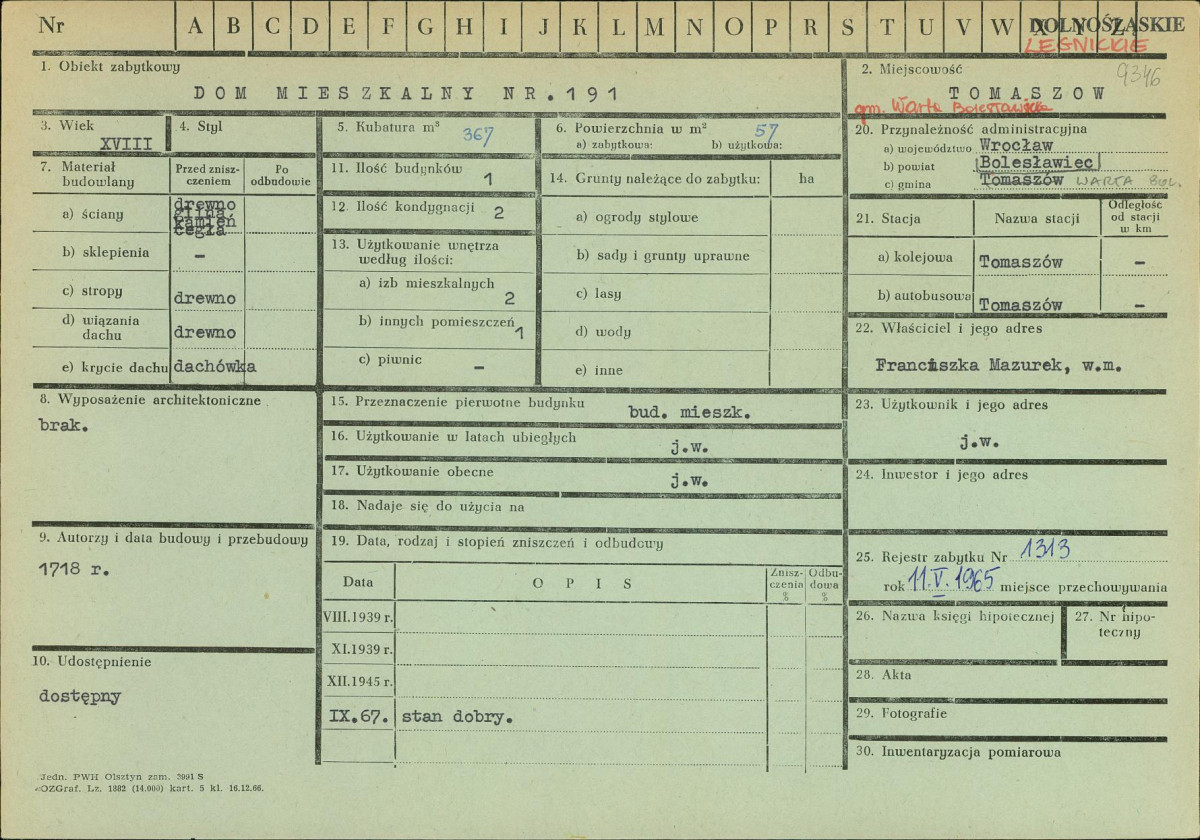 Nr A B C D E F G H I J K L M N O P R S T U V W X Y Z DOLNOŚLĄSKIE
LEGNICKIE
1. Obiekt zabytkowy
DOM MIESZKALNY NR.191
2. Miejscowość
9346
TOMASZOW
gm. Warta Bolesławiecka
3. Wiek
XVIII
4. Styl
5. Kubatura m³
367
6. Powierzchnia w m²
57
a) zabytkowa: b) użytkowa:
7. Materiał budowlany
Przed znisz-
czeniem
Po
odbudowie
a) ściany
drewno
glina
kamień
cegła
b) sklepienia –
c) stropy drewno
d) wiązania
dachu drewno
e) krycie dachu dachówka
8. Wyposażenie architektoniczne
brak.
9. Autorzy i data budowy i przebudowy
1718 r.
10. Udostępnienie
dostępny
11. Ilość budynków 1
12. Ilość kondygnacji 2
13. Użytkowanie wnętrza
według ilości:
a) izb mieszkalnych
2
b) innych pomieszczeń
1
c) piwnic –
14. Grunty należące do zabytku: ha
a) ogrody stylowe
b) sady i grunty uprawne
c) lasy
d) wody
e) inne
15. Przeznaczenie pierwotne budynku bud. mieszk.
16. Użytkowanie w latach ubiegłych j.w.
17. Użytkowanie obecne j.w.
18. Nadaje się do użycia na
19. Data, rodzaj i stopień zniszczeń i odbudowy
Data OPIS
Znisz-
czenia
%
Odbu-
dowa
%
VIII.1939 r.
XI.1939 r.
XII.1945 r.
IX.67. stan dobry.
20. Przynależność administracyjna
a) województwo Wrocław
b) powiat Bolesławiec
c) gmina Tomaszów WARTA BOL.
21. Stacja
Nazwa stacji
Odległość
od stacji
w km
a) kolejowa Tomaszów –
b) autobusowa Tomaszów –
22. Właściciel i jego adres
Franciszka Mazurek, w.m.
23. Użytkownik i jego adres
j.w.
24. Inwestor i jego adres
25. Rejestr zabytku Nr 1313
rok 11.V.1965 miejsce przechowywania
26. Nazwa księgi hipotecznej
27. Nr hipo-
teczny
28. Akta
29. Fotografie
30. Inwentaryzacja pomiarowa
Jedn. PWH Olsztyn zam. 3991 S
OZGraf. Lz. 1882 (14.000) kart. 5 kl. 16.12.66.